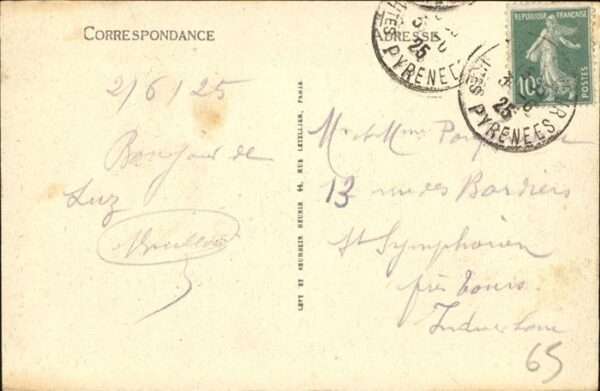 CORRESPONDANCE
ADRESSE
2/6/25
Bonjour de
Luz
LEVY ET NEURDEIN REUNIS 44, RUE LETELLIER, PARIS
Mr et Mme
13 rue des Bordiers
St Symphorien
près Tours
Indre et Loire
65
REPUBLIQUE FRANÇAISE
10c
POSTES
25
HTES PYRENEES
25
HTES PYRENEES